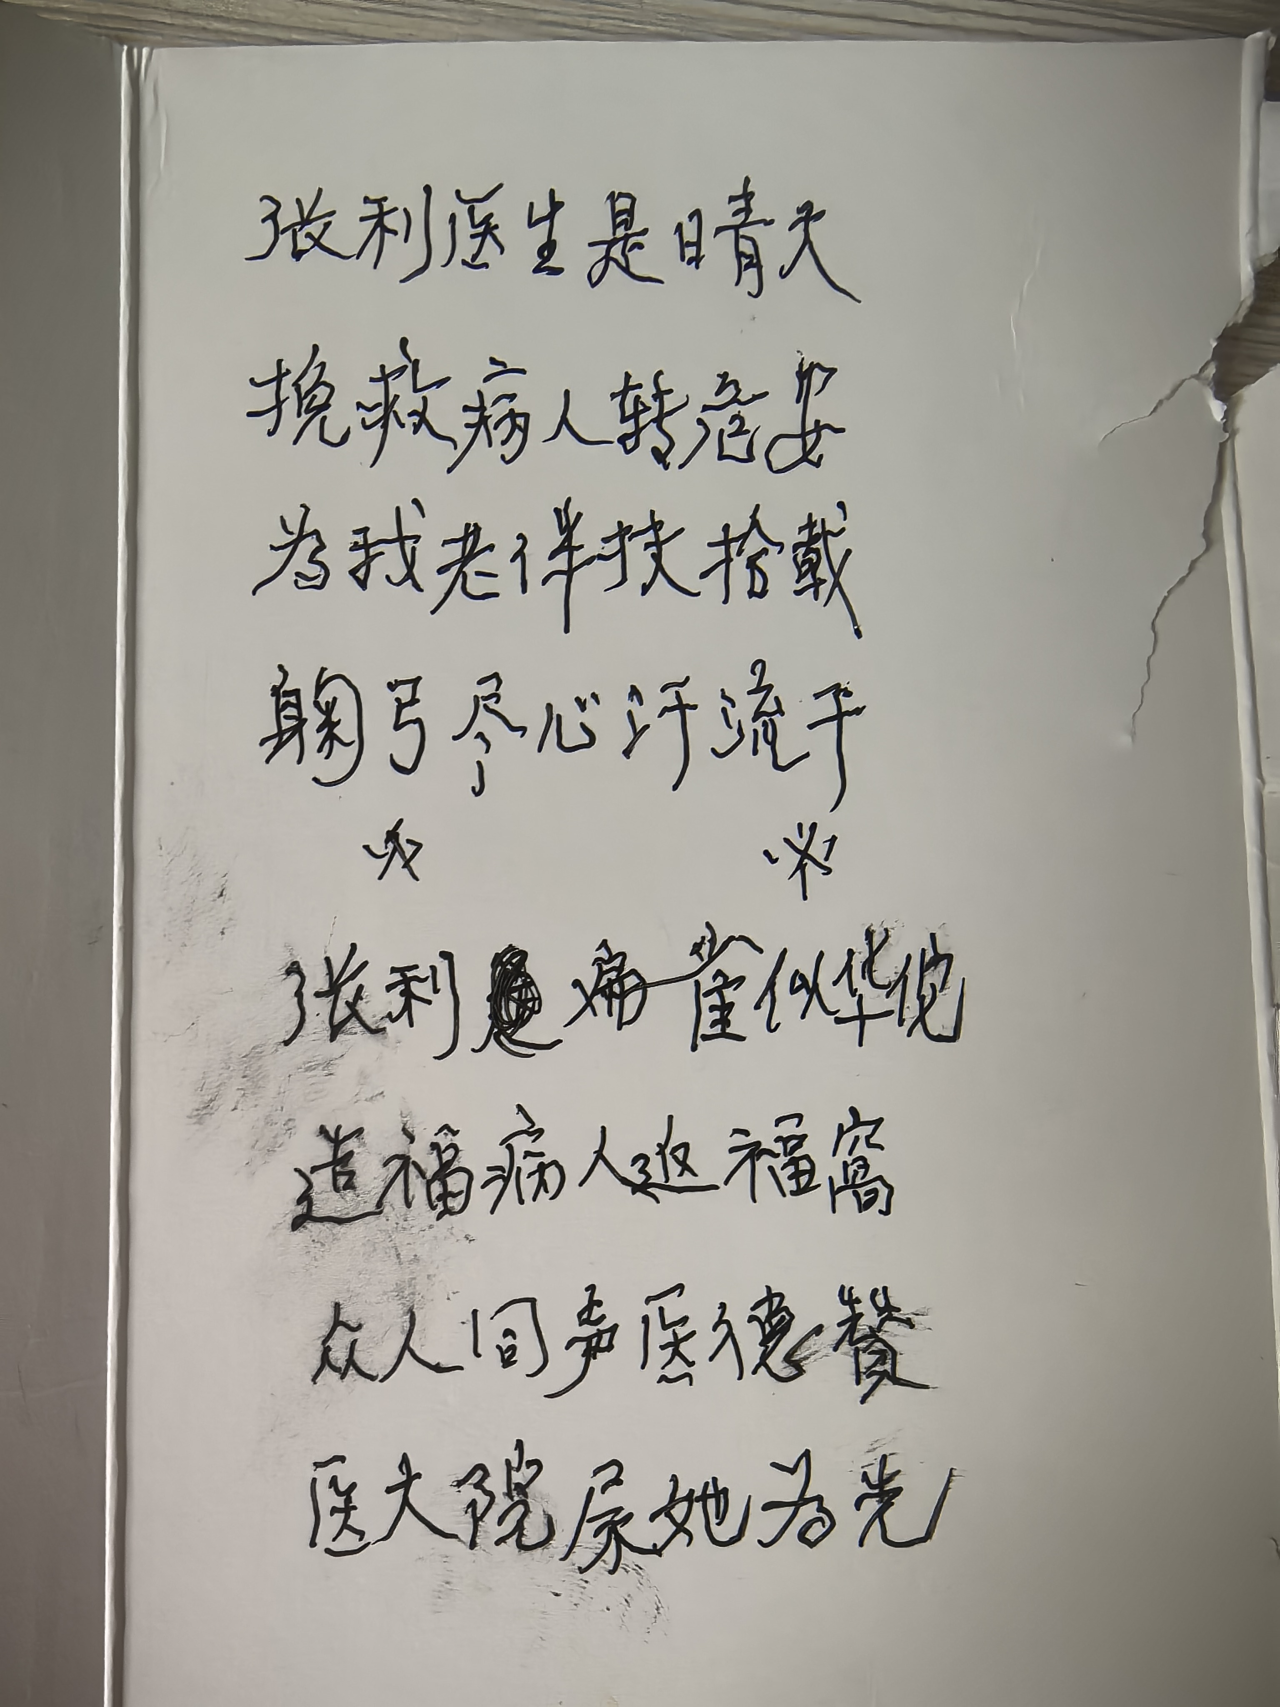 张利医生是晴天
挽救病人转危安
为我老伴扶抬载
躬弓尽心汗流干
张利扁雀似华佗
造福病人返福窝
众人同声医德赞
医大院 她为光